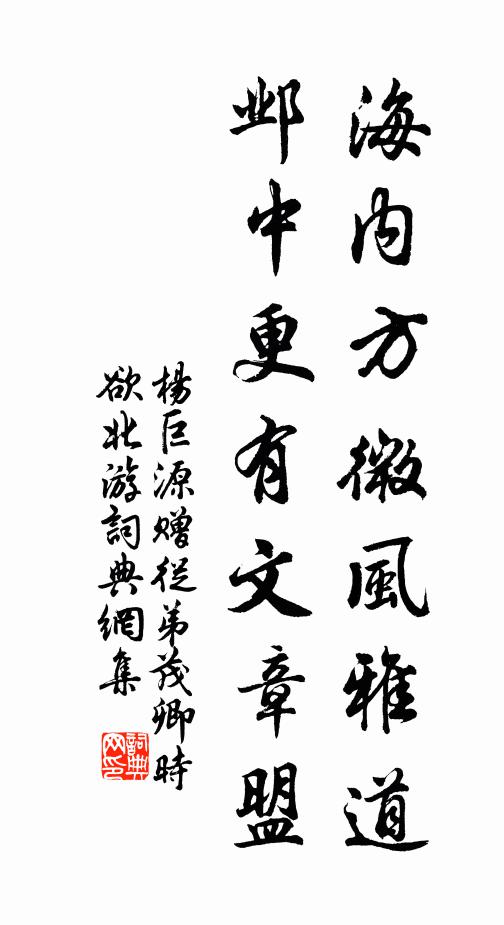 海内方微風雅道
邺中更有文章盟
楊巨源赠從弟茂卿時
欲北游詞典網集
詞典网印